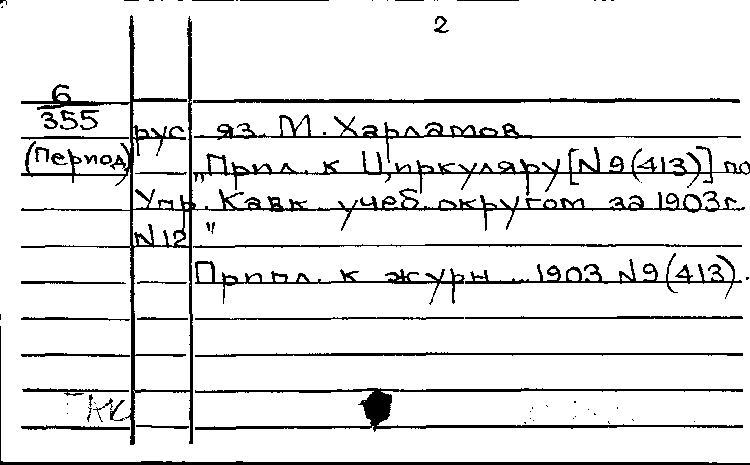 2
6/355
рус. яз. М. Харламов
(Период) „Прил. к Циркуляру [N9(413)] по
Упр. Кавк. учеб. округом за 1903г.
N12"
Прил. к журн. 1903 N9(413).